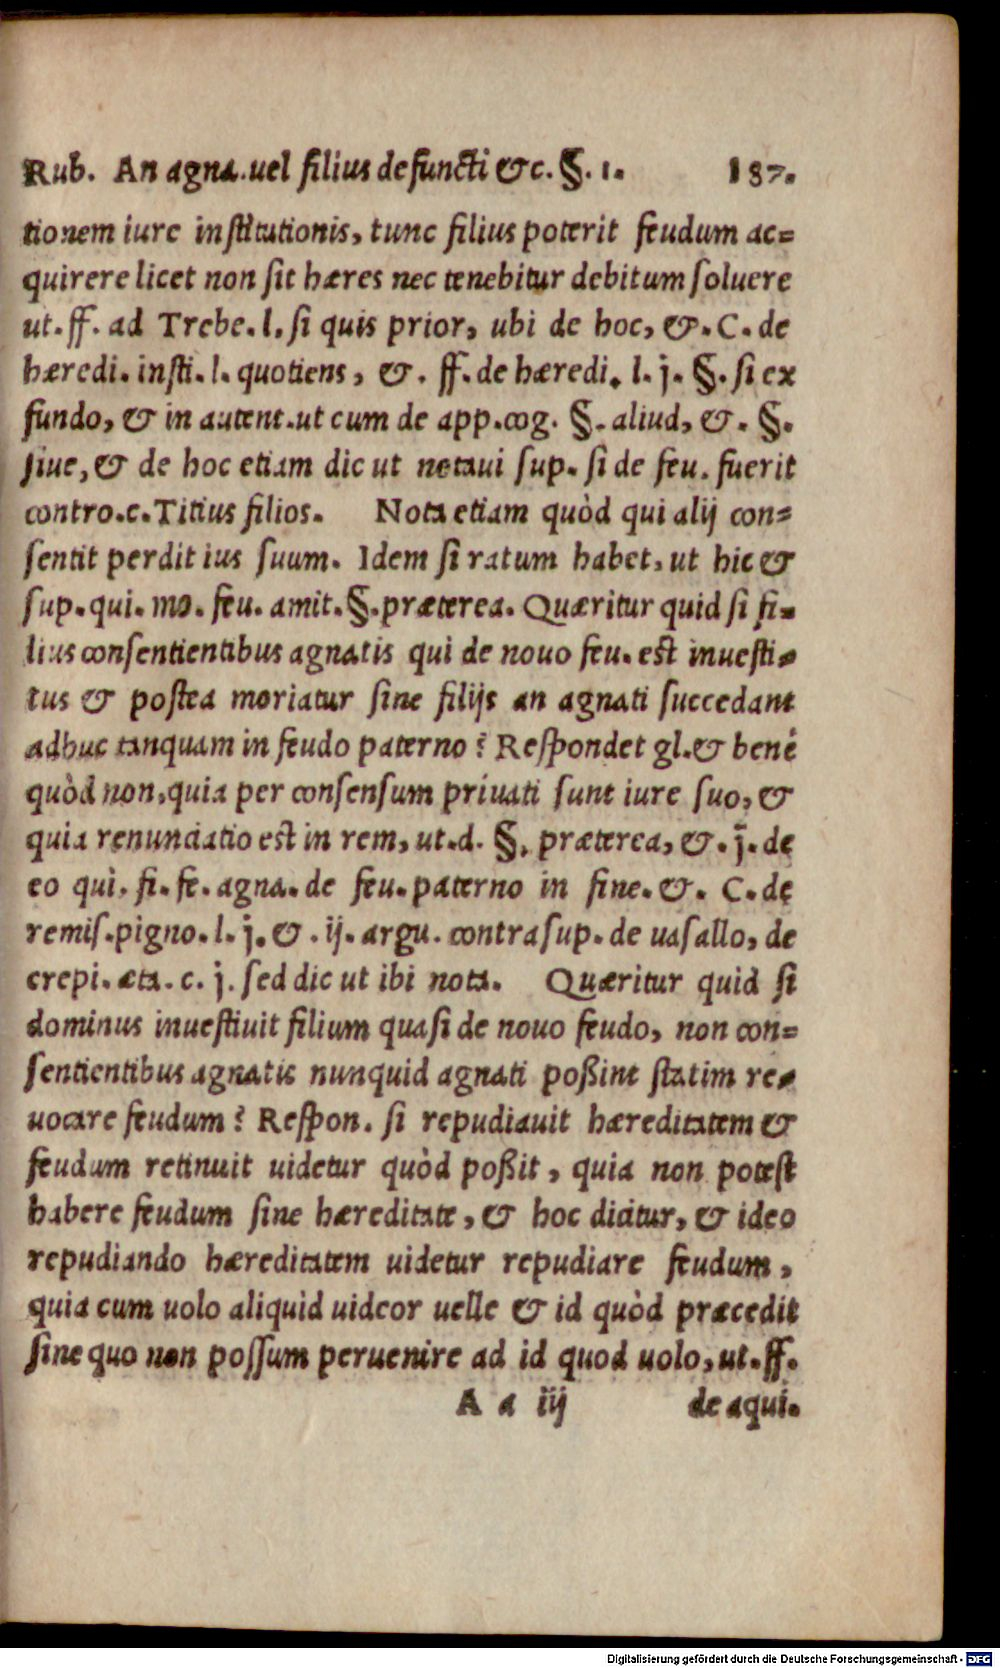 Rub. An agna. uel filius defuncti &c. §. 1. 187.
tionem iure institutionis, tunc filius poterit feudum ac=
quirere licet non sit hæres nec tenebitur debitum soluere
ut. ff. ad Trebe. l. si quis prior, ubi de hoc, &. C. de
hæredi. insti. l. quotiens, &. ff. de hæredi. l. j. §. si ex
fundo, & in autent. ut cum de app. cog. §. aliud, &. §.
siue, & de hoc etiam dic ut notaui sup. si de feu. fuerit
contro. c. Titius filios. Nota etiam quòd qui alij con=
sentit perdit ius suum. Idem si ratum habet, ut hic &
sup. qui. mo. feu. amit. §. præterea. Quæritur quid si fi=
lius consentientibus agnatis qui de nouo feu. est inuesti=
tus & postea moriatur sine filijs an agnati succedant
adhuc tanquam in feudo paterno? Respondet gl. & benè
quòd non, quia per consensum priuati sunt iure suo, &
quia renunciatio est in rem, ut. d. §. præterea, &. j. de
eo qui. fi. fe. agna. de feu. paterno in fine. &. C. de
remis. pigno. l. j. &. ij. argu. contra sup. de uasallo, de
crepi. æta. c. j. sed dic ut ibi nota. Quæritur quid si
dominus inuestiuit filium quasi de nouo feudo, non con=
sentientibus agnatis nunquid agnati poßint statim re=
uocare feudum? Respon. si repudiauit hæreditatem &
feudum retinuit uidetur quòd poßit, quia non potest
habere feudum sine hæreditate, & hoc dicitur, & ideo
repudiando hæreditatem uidetur repudiare feudum,
quia cum uolo aliquid uideor uelle & id quòd præcedit
sine quo non possum peruenire ad id quod uolo, ut. ff.
A a iij de aqui.
Digitalisierung gefördert durch die Deutsche Forschungsgemeinschaft - DFG